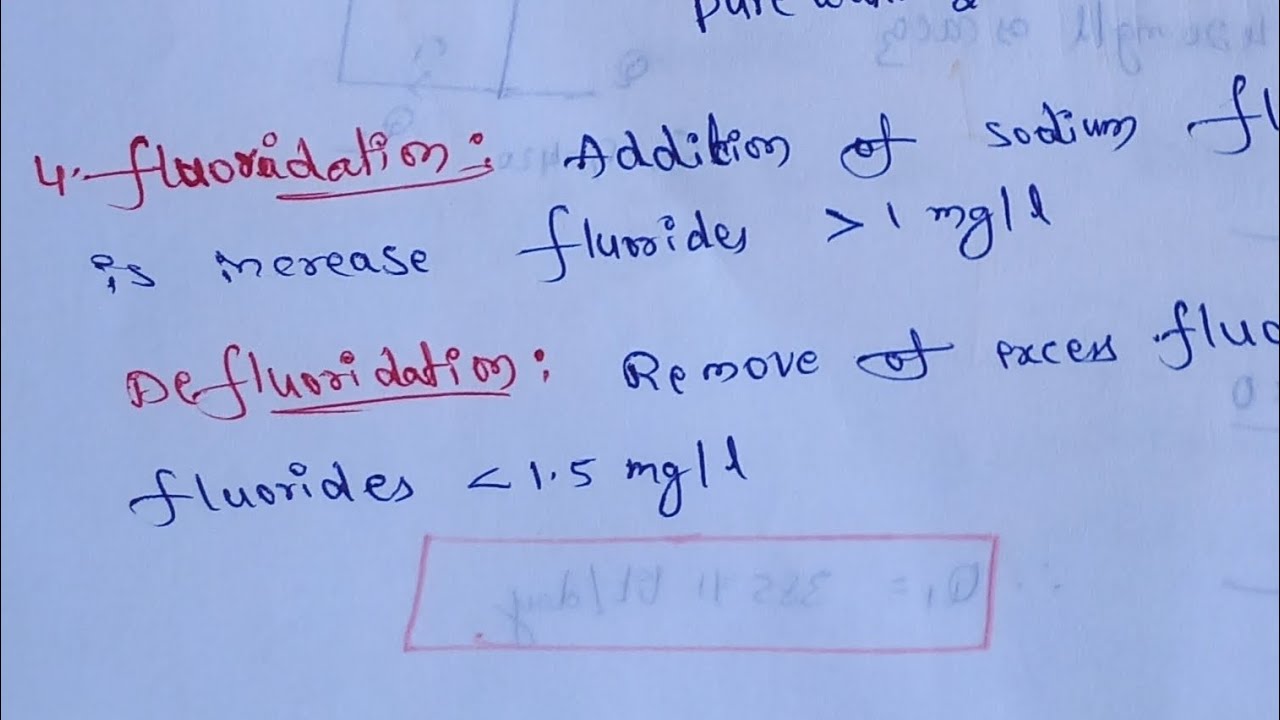 pure
4. fluoridation: Addition of sodium fl
is increase fluorides > 1 mg/l
Defluoridation: Remove of excess fluo
fluorides < 1.5 mg/l